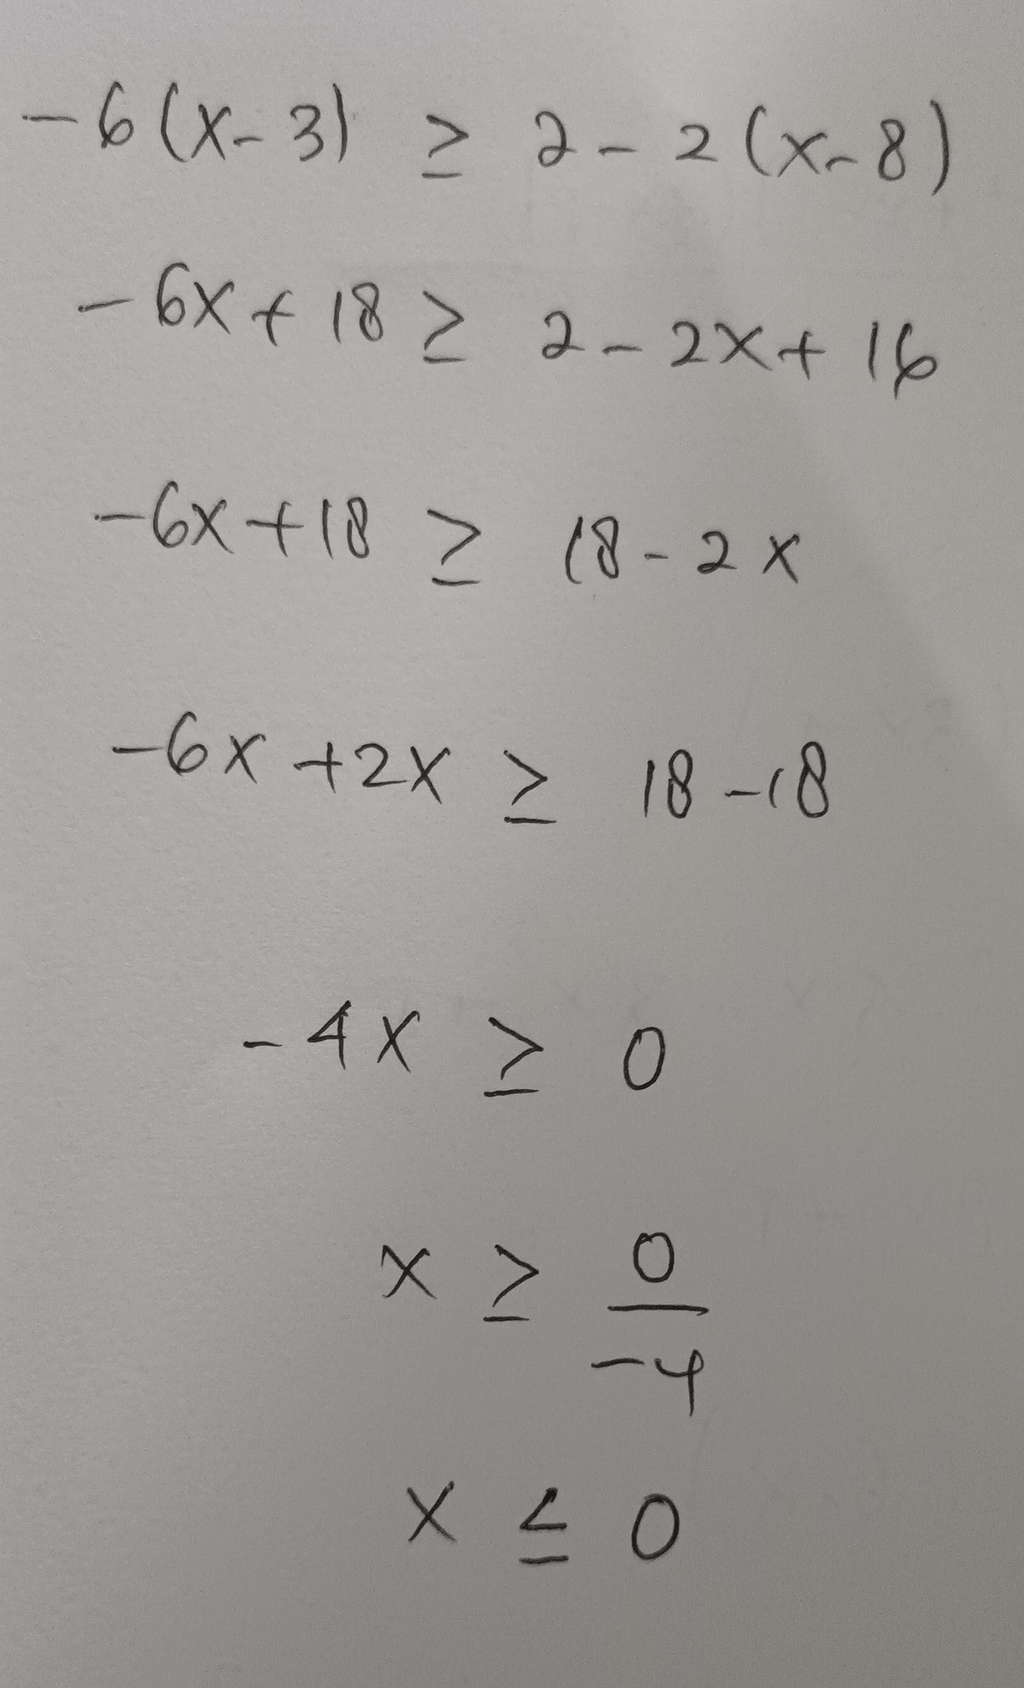 -6(x-3) ≥ 2-2(x-8)
-6x+18 ≥ 2-2x+16
-6x+18 ≥ 18-2x
-6x+2x ≥ 18-18
-4x ≥ 0
x ≥ 0/-4
x ≤ 0